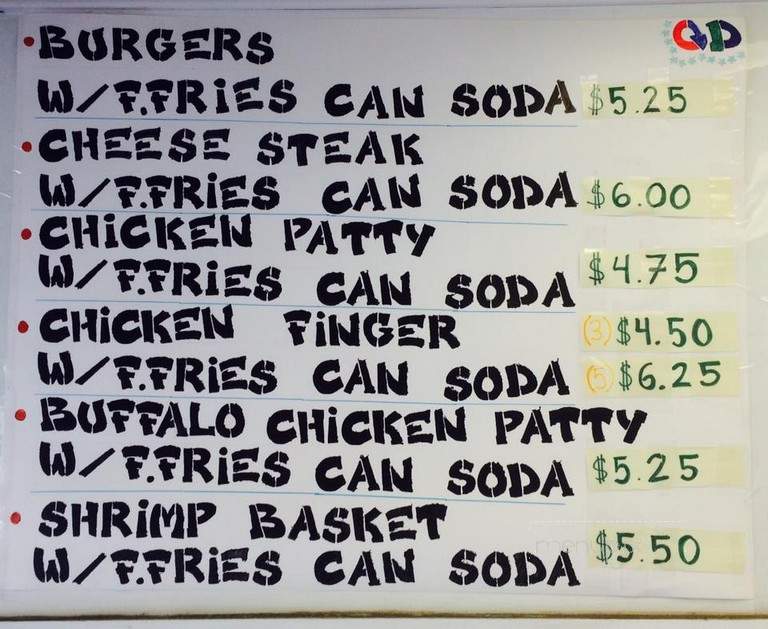 • BURGERS QD
W/F.FRiES CAN SODA $5.25
• CHEESE STEAK
W/F.FRiES CAN SODA $6.00
• CHiCKEN PATTY
W/F.FRiES CAN SODA $4.75
• CHiCKEN FiNGER (3) $4.50
W/F.FRiES CAN SODA (5) $6.25
• BUFFALO CHiCKEN PATTY
W/F.FRiES CAN SODA $5.25
• SHRiMP BASKET
W/F.FRiES CAN SODA $5.50